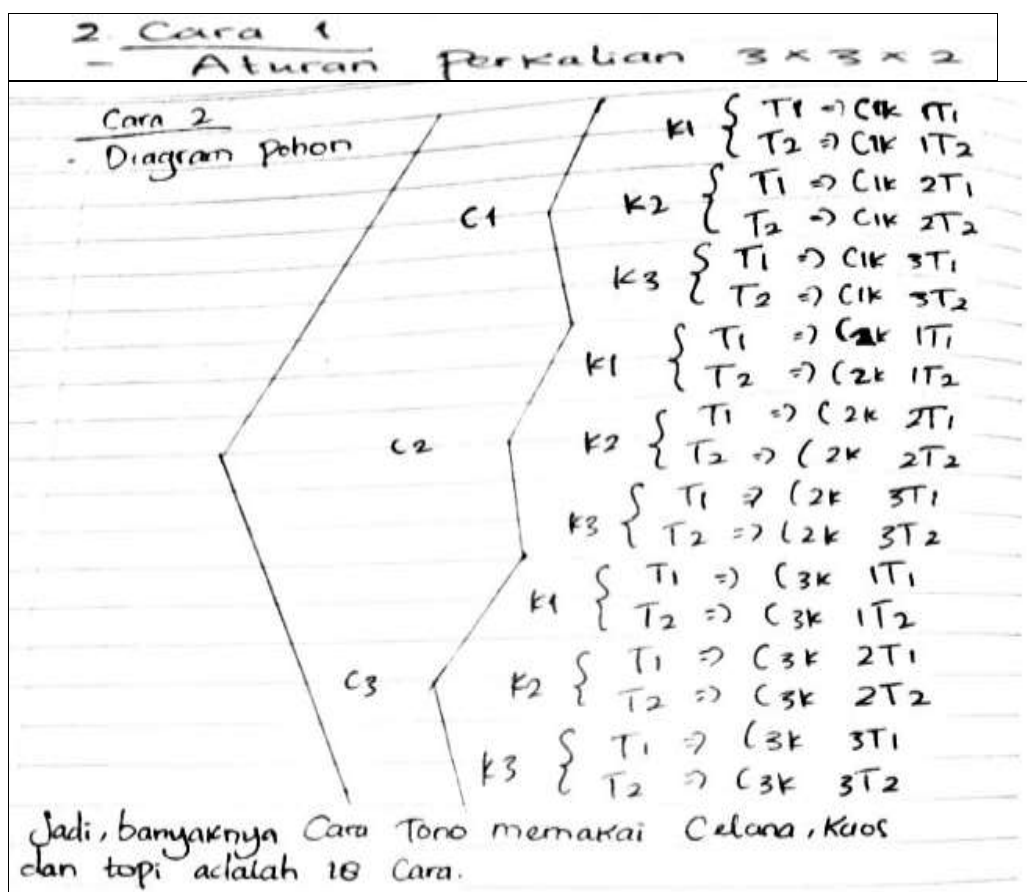 2. Cara 1
- Aturan Perkalian 3 x 3 x 2
Cara 2
- Diagram Pohon
C1
K1 { T1 => C1K 1T1
T2 => C1K 1T2
K2 { T1 => C1K 2T1
T2 => C1K 2T2
K3 { T1 => C1K 3T1
T2 => C1K 3T2
C2
K1 { T1 => C2K 1T1
T2 => C2K 1T2
K2 { T1 => C2K 2T1
T2 => C2K 2T2
K3 { T1 => C2K 3T1
T2 => C2K 3T2
C3
K1 { T1 => C3K 1T1
T2 => C3K 1T2
K2 { T1 => C3K 2T1
T2 => C3K 2T2
K3 { T1 => C3K 3T1
T2 => C3K 3T2
Jadi, banyaknya Cara Tono memakai Celana, Kaos
dan topi adalah 18 Cara.